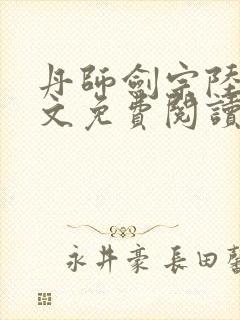 丹師劍宗陸
文免費閱讀
永井豪 長田馨